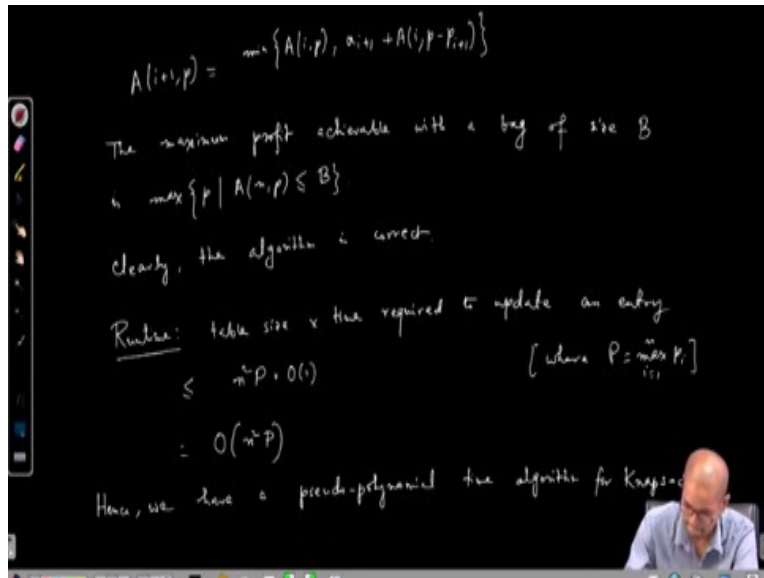 A(i+1,p) = min{A(i,p), a_{i+1} + A(i, p-p_{i+1})}
The maximum profit achievable with a bag of size B
is max{p | A(n,p) ≤ B}.
Clearly, the algorithm is correct.
Runtime: table size x time required to update an entry
≤ n²P · O(1) [where P = max_{i=1}^{n} p_i]
= O(n²P)
Hence, we have a pseudo-polynomial time algorithm for Knapsac